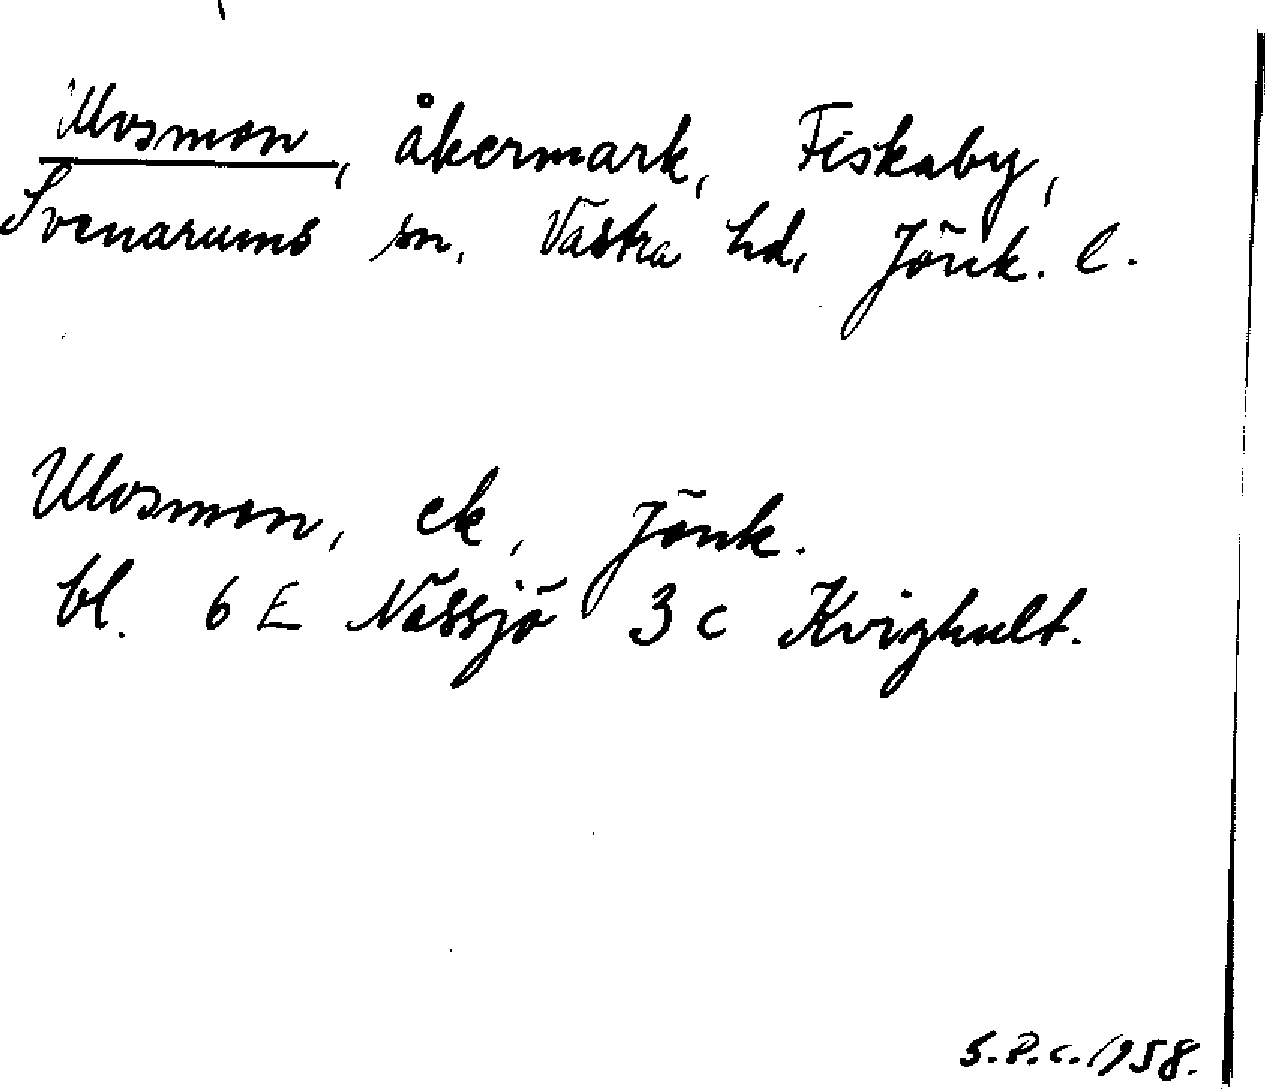 Ulvsmon, åkermark, Fiskaby,
Svenarums sn. Västra hd. Jönk. l.
Ulvsmon, ek, Jönk.
bl. 6 E Nässjö 3 c Kvighult.
S.P.C. 1958.